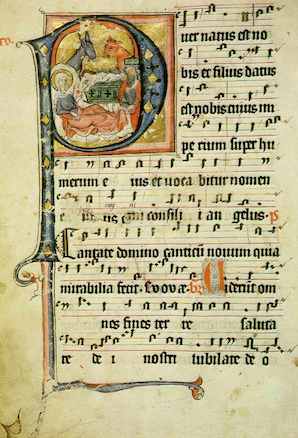 Puer natus est no
bis et filius datus
est nobis cuius im
pe rium super hu
merum e ius et voca bitur nomen
e ius consili i an gelus. p
Cantate domino canticum novum quia
mirabilia fecit. Evovae. Viderunt om
nes fines ter re saluta
re de i nostri iubilate de o